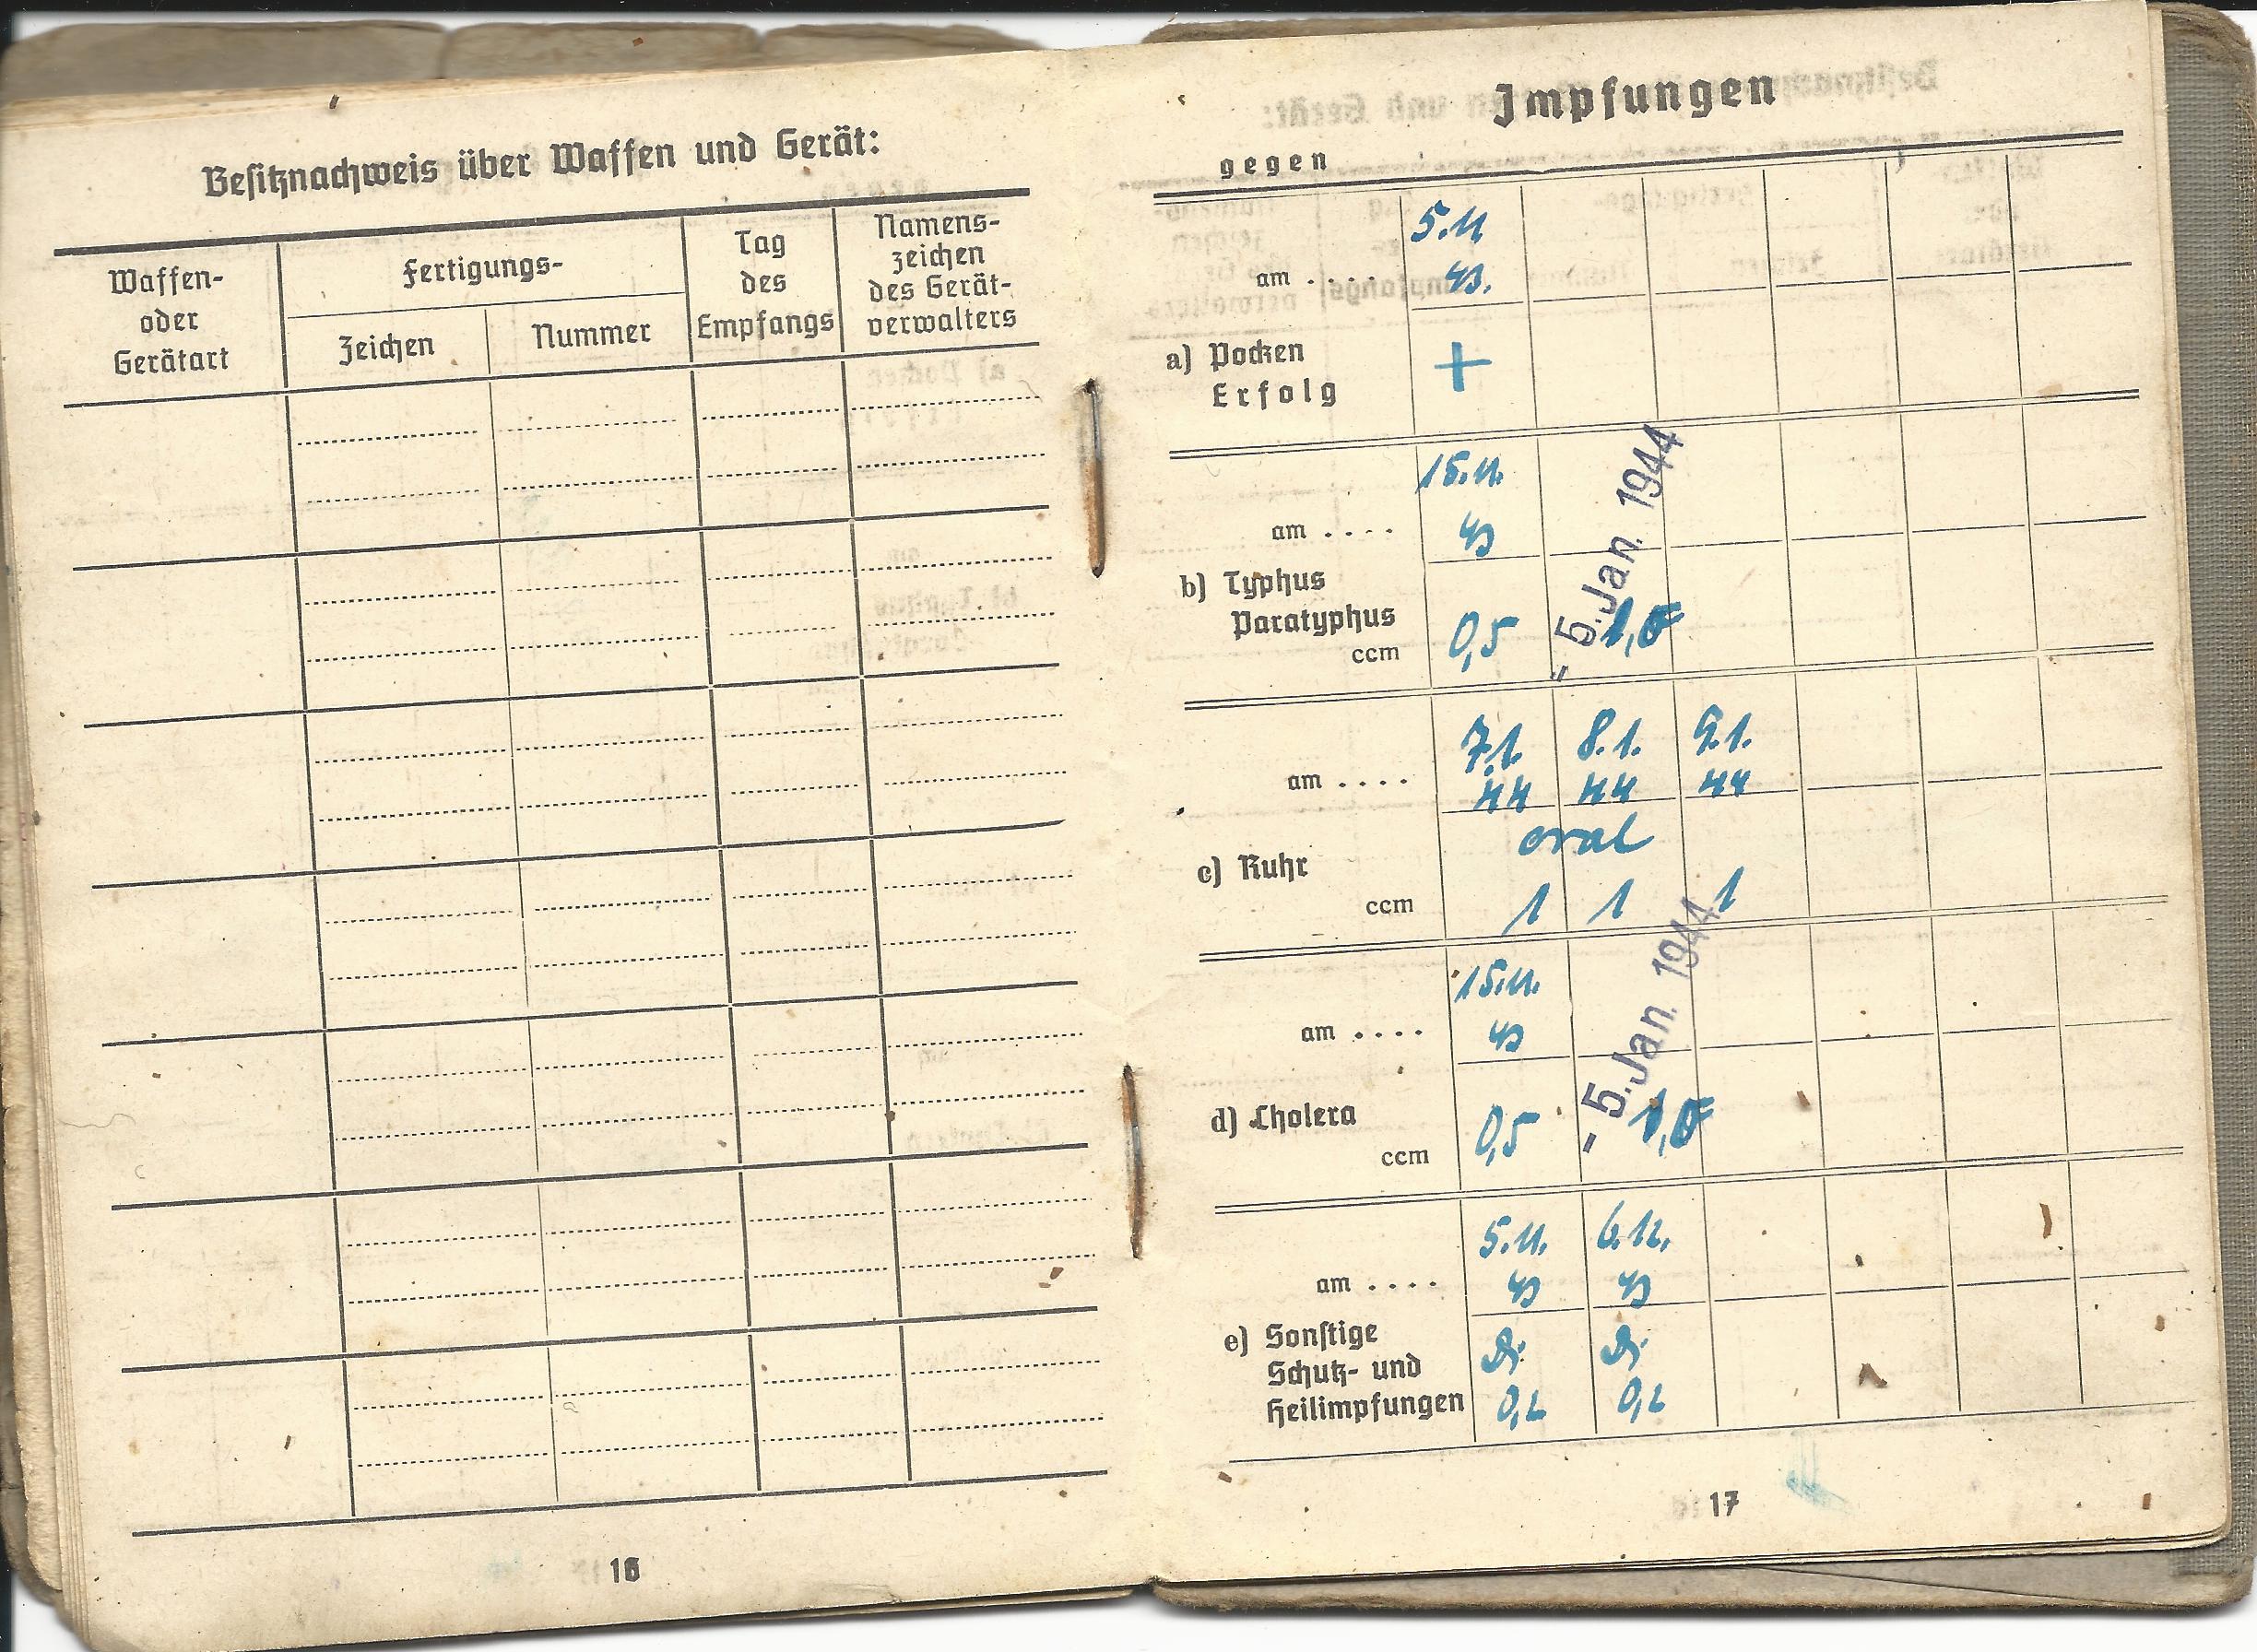 Besitznachweis über Waffen und Gerät:
Waffen-
oder
Gerätart
Fertigungs-
Zeichen
Nummer
Tag
des
Empfangs
Namens-
zeichen
des Gerät-
verwalters
16
Impfungen
gegen
5.11
am . . . . 43.
a) Pocken
Erfolg +
15.11. - 5. Jan. 1944
am . . . . 43
b) Typhus
Paratyphus
ccm 0,5 1,0
7.1. 8.1. 9.1.
am . . . . 44 44 44
oral
c) Ruhr
ccm 1 1 1
15.11. - 5. Jan. 1944
am . . . . 43
d) Cholera
ccm 0,5 1,0
5.11. 6.12.
am . . . . 43 43
e) Sonstige Di. Di.
Schutz- und
Heilimpfungen 0,2 0,2
17